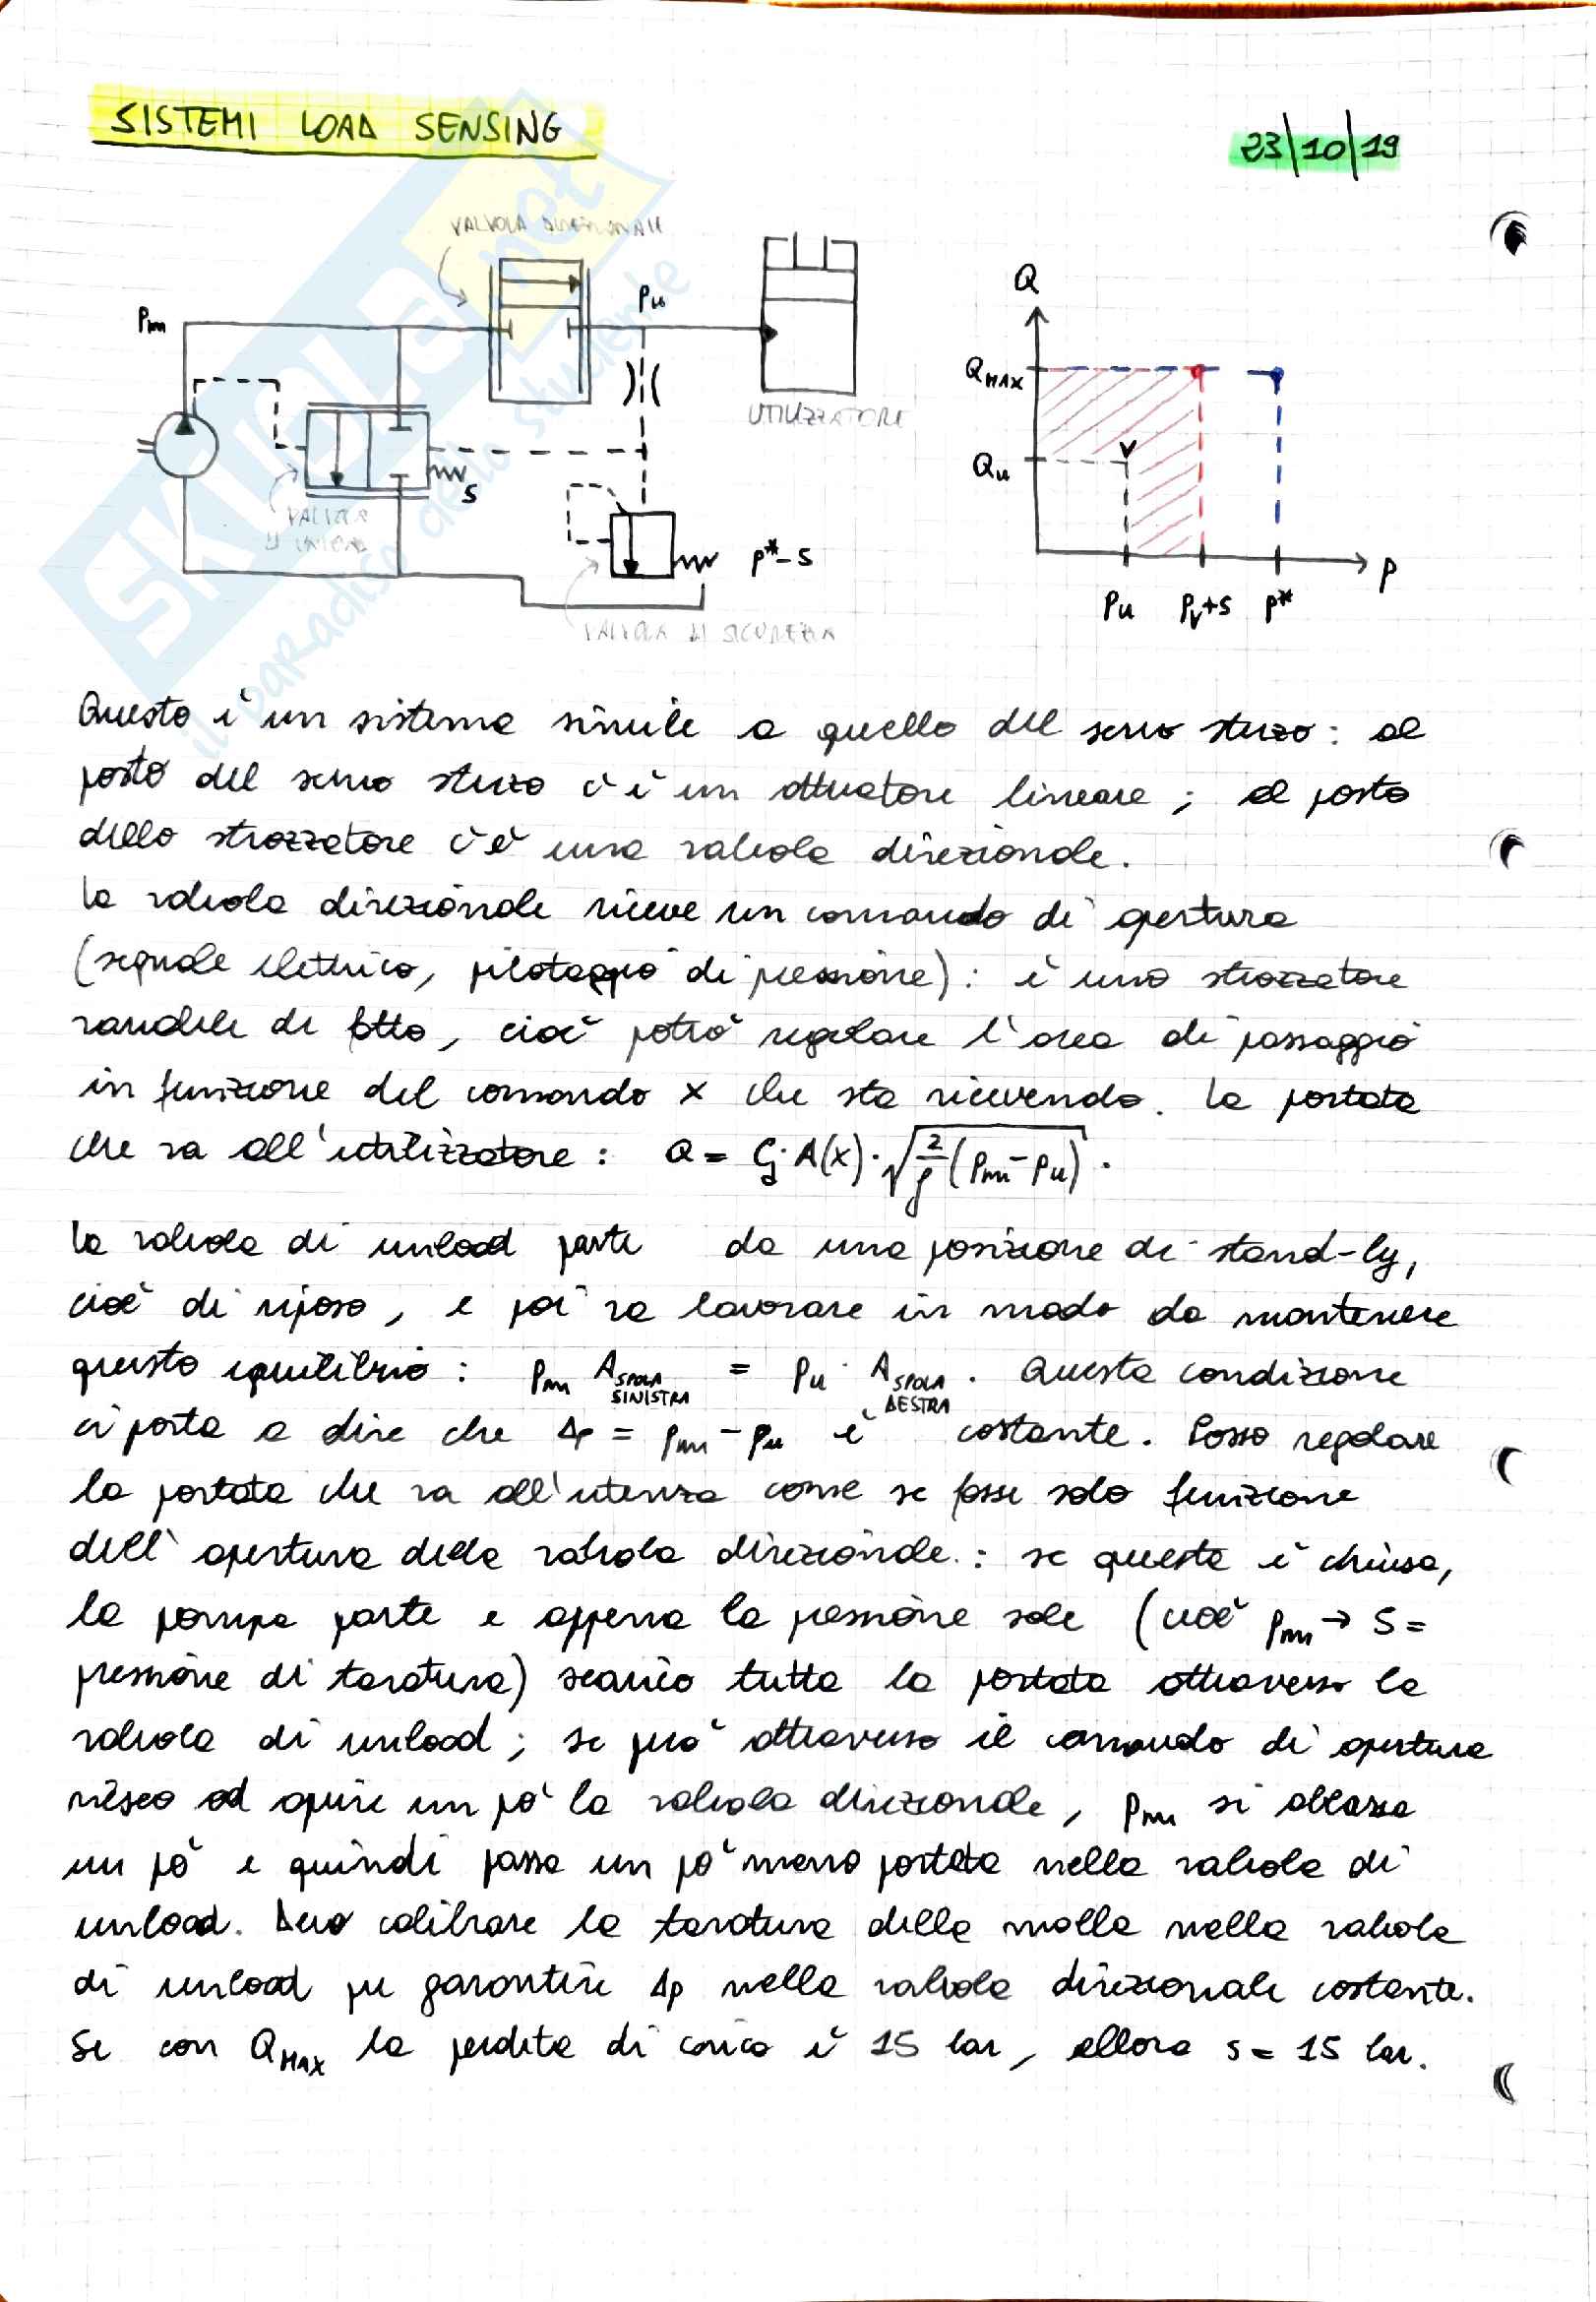 SISTEMI LOAD SENSING
23|10|19
VALVOLA DIREZIONALE
Pm
Pu
UTILIZZATORE
S
VALVOLA
DI UNLOAD
P*-S
VALVOLA DI SICUREZZA
Q
QMAX
Qu
V
Pu Pu+S P*
P
SKUOLA.net
il paradiso dello studente
Questo è un sistema simile a quello del servo sterzo: al
posto del servo sterzo c'è un attuatore lineare; al posto
dello strozzatore c'è una valvola direzionale.
La valvola direzionale riceve un comando di apertura
(segnale elettrico, pilotaggio di pressione): è uno strozzatore
variabile di fatto, cioè potrò regolare l'area di passaggio
in funzione del comando x che sta ricevendo. La portata
che va all'utilizzatore: Q = Cd·A(x)·√(2/ρ (pm-pu)).
La valvola di unload parte da una posizione di stand-by,
cioè di riposo, e poi va lavorare in modo da mantenere
questo equilibrio: pm A SPOLA SINISTRA = pu· A SPOLA DESTRA. Questa condizione
ci porta a dire che Δp = pm-pu è costante. Posso regolare
la portata che va all'utenza come se fosse solo funzione
dell'apertura della valvola direzionale: se questa è chiusa,
la pompa parte e appena la pressione sale (cioè pm → S =
pressione di taratura) scarico tutta la portata attraverso la
valvola di unload; se però attraverso il comando di apertura
riesco ad aprire un pò la valvola direzionale, pm si abbassa
un pò e quindi passa un pò meno portata nella valvola di
unload. Devo calibrare la taratura della molla nella valvola
di unload per garantire Δp nella valvola direzionale costante.
Se con QMAX la perdita di carico è 15 bar, allora s = 15 bar.